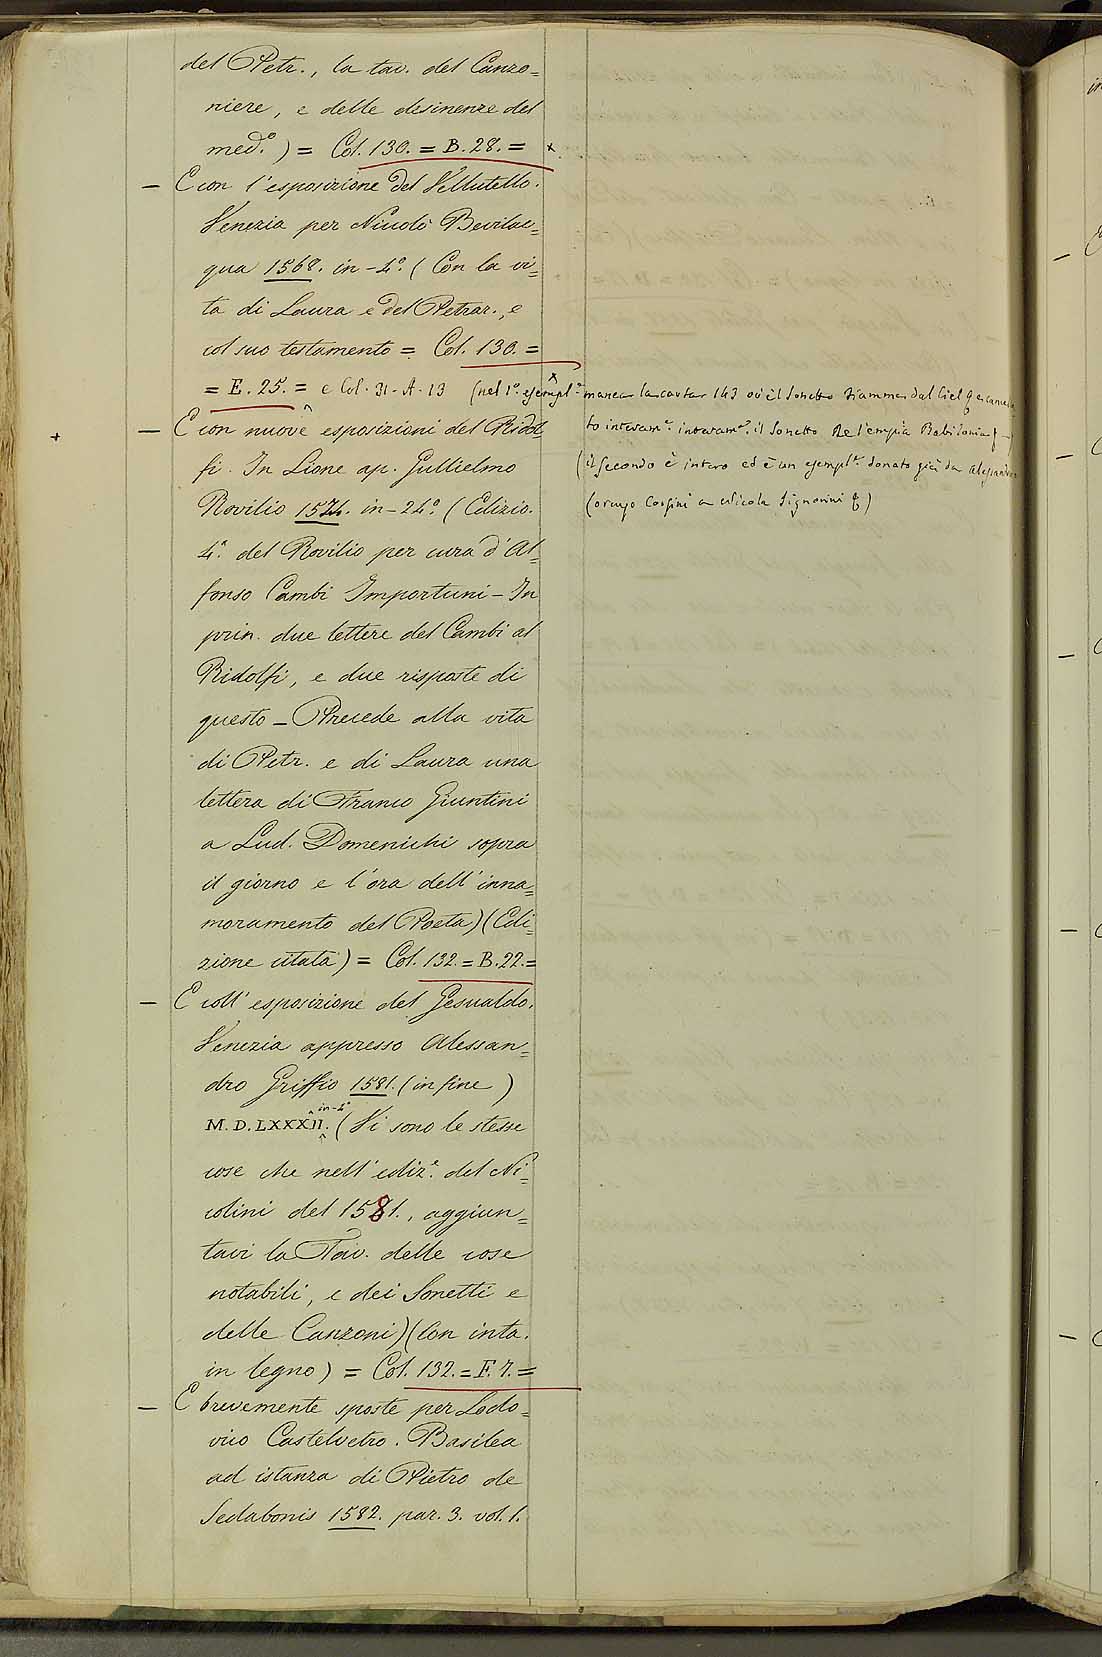 del Petr., la tav. del Canzo=
niere, e delle desinenze del
med.º) = Col. 130. = B. 28. = x.
— E con l'esposizione del Vellutello.
Venezia per Nicolò Bevilac=
qua 1568. in-4º. (Con la vi=
ta di Laura e del Petrar., e
col suo testamento = Col. 130. =
= E. 25. = e Col. 31-A-13 (nel 1º. esempl.º manca la carta 143 ov'è il Sonetto Fiamma dal Ciel
+ — E con nuove esposizioni del Ridol=
to interam.º il Sonetto De l'empia Babilonia
fi. In Lione ap. Gullielmo
(il secondo è intero ed è un esempl.º donato già da
Rovilio 1574. in-24º. (Edizio.
Corsini a Nicola Signorini
4ª. del Rovilio per cura d'Al=
fonso Cambi Importuni – In
prin. due lettere del Cambi al
Ridolfi, e due risposte di
questo – Precede alla vita
di Petr. e di Laura una
lettera di Franco Giuntini
a Lud. Domenichi sopra
il giorno e l'ora dell'inna=
moramento del Poeta) (Edi=
zione citata) = Col. 132. = B. 22. =
— E coll'esposizione del Gesualdo.
Venezia appresso Alessan=
dro Griffio 1581. (in fine)
M.D.LXXXII. in-4º (Vi sono le stesse
cose che nell'ediz.e del Ni=
colini del 1581., aggiun=
tavi la Tav. delle cose
notabili, e dei Sonetti e
delle Canzoni) (Con inta.
in legno) = Col. 132. = F. 7. =
— E brevemente sposte per Lodo=
vico Castelvetro. Basilea
ad istanza di Pietro de
Sedabonis 1582. par. 3. vol. 1.